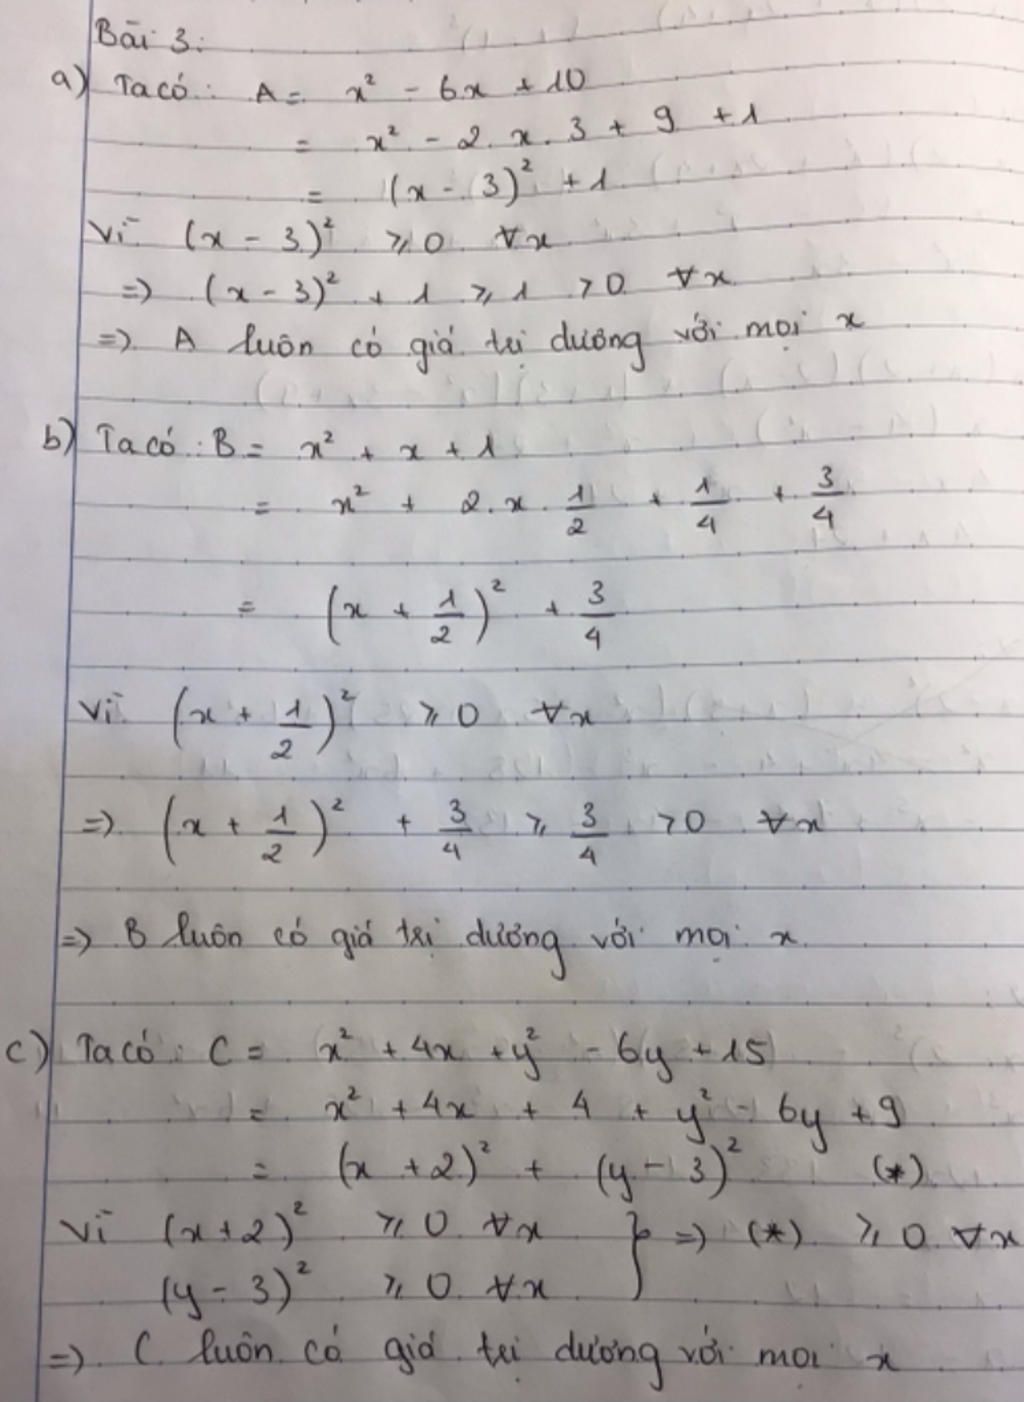 Bài 3:
a) Ta có: A = x² - 6x + 10
= x² - 2.x.3 + 9 + 1
= (x - 3)² + 1
Vì (x - 3)² ⩾ 0 ∀x
=> (x - 3)² + 1 ⩾ 1 > 0 ∀x
=> A luôn có giá trị dương với mọi x
b) Ta có: B = x² + x + 1
= x² + 2.x.1/2 + 1/4 + 3/4
= (x + 1/2)² + 3/4
Vì (x + 1/2)² ⩾ 0 ∀x
=> (x + 1/2)² + 3/4 ⩾ 3/4 > 0 ∀x
=> B luôn có giá trị dương với mọi x
c) Ta có: C = x² + 4x + y² - 6y + 15
= x² + 4x + 4 + y² - 6y + 9
= (x + 2)² + (y - 3)² (*)
Vì (x+2)² ⩾ 0 ∀x } => (*) ⩾ 0 ∀x
(y - 3)² ⩾ 0 ∀x
=> C luôn có giá trị dương với mọi x